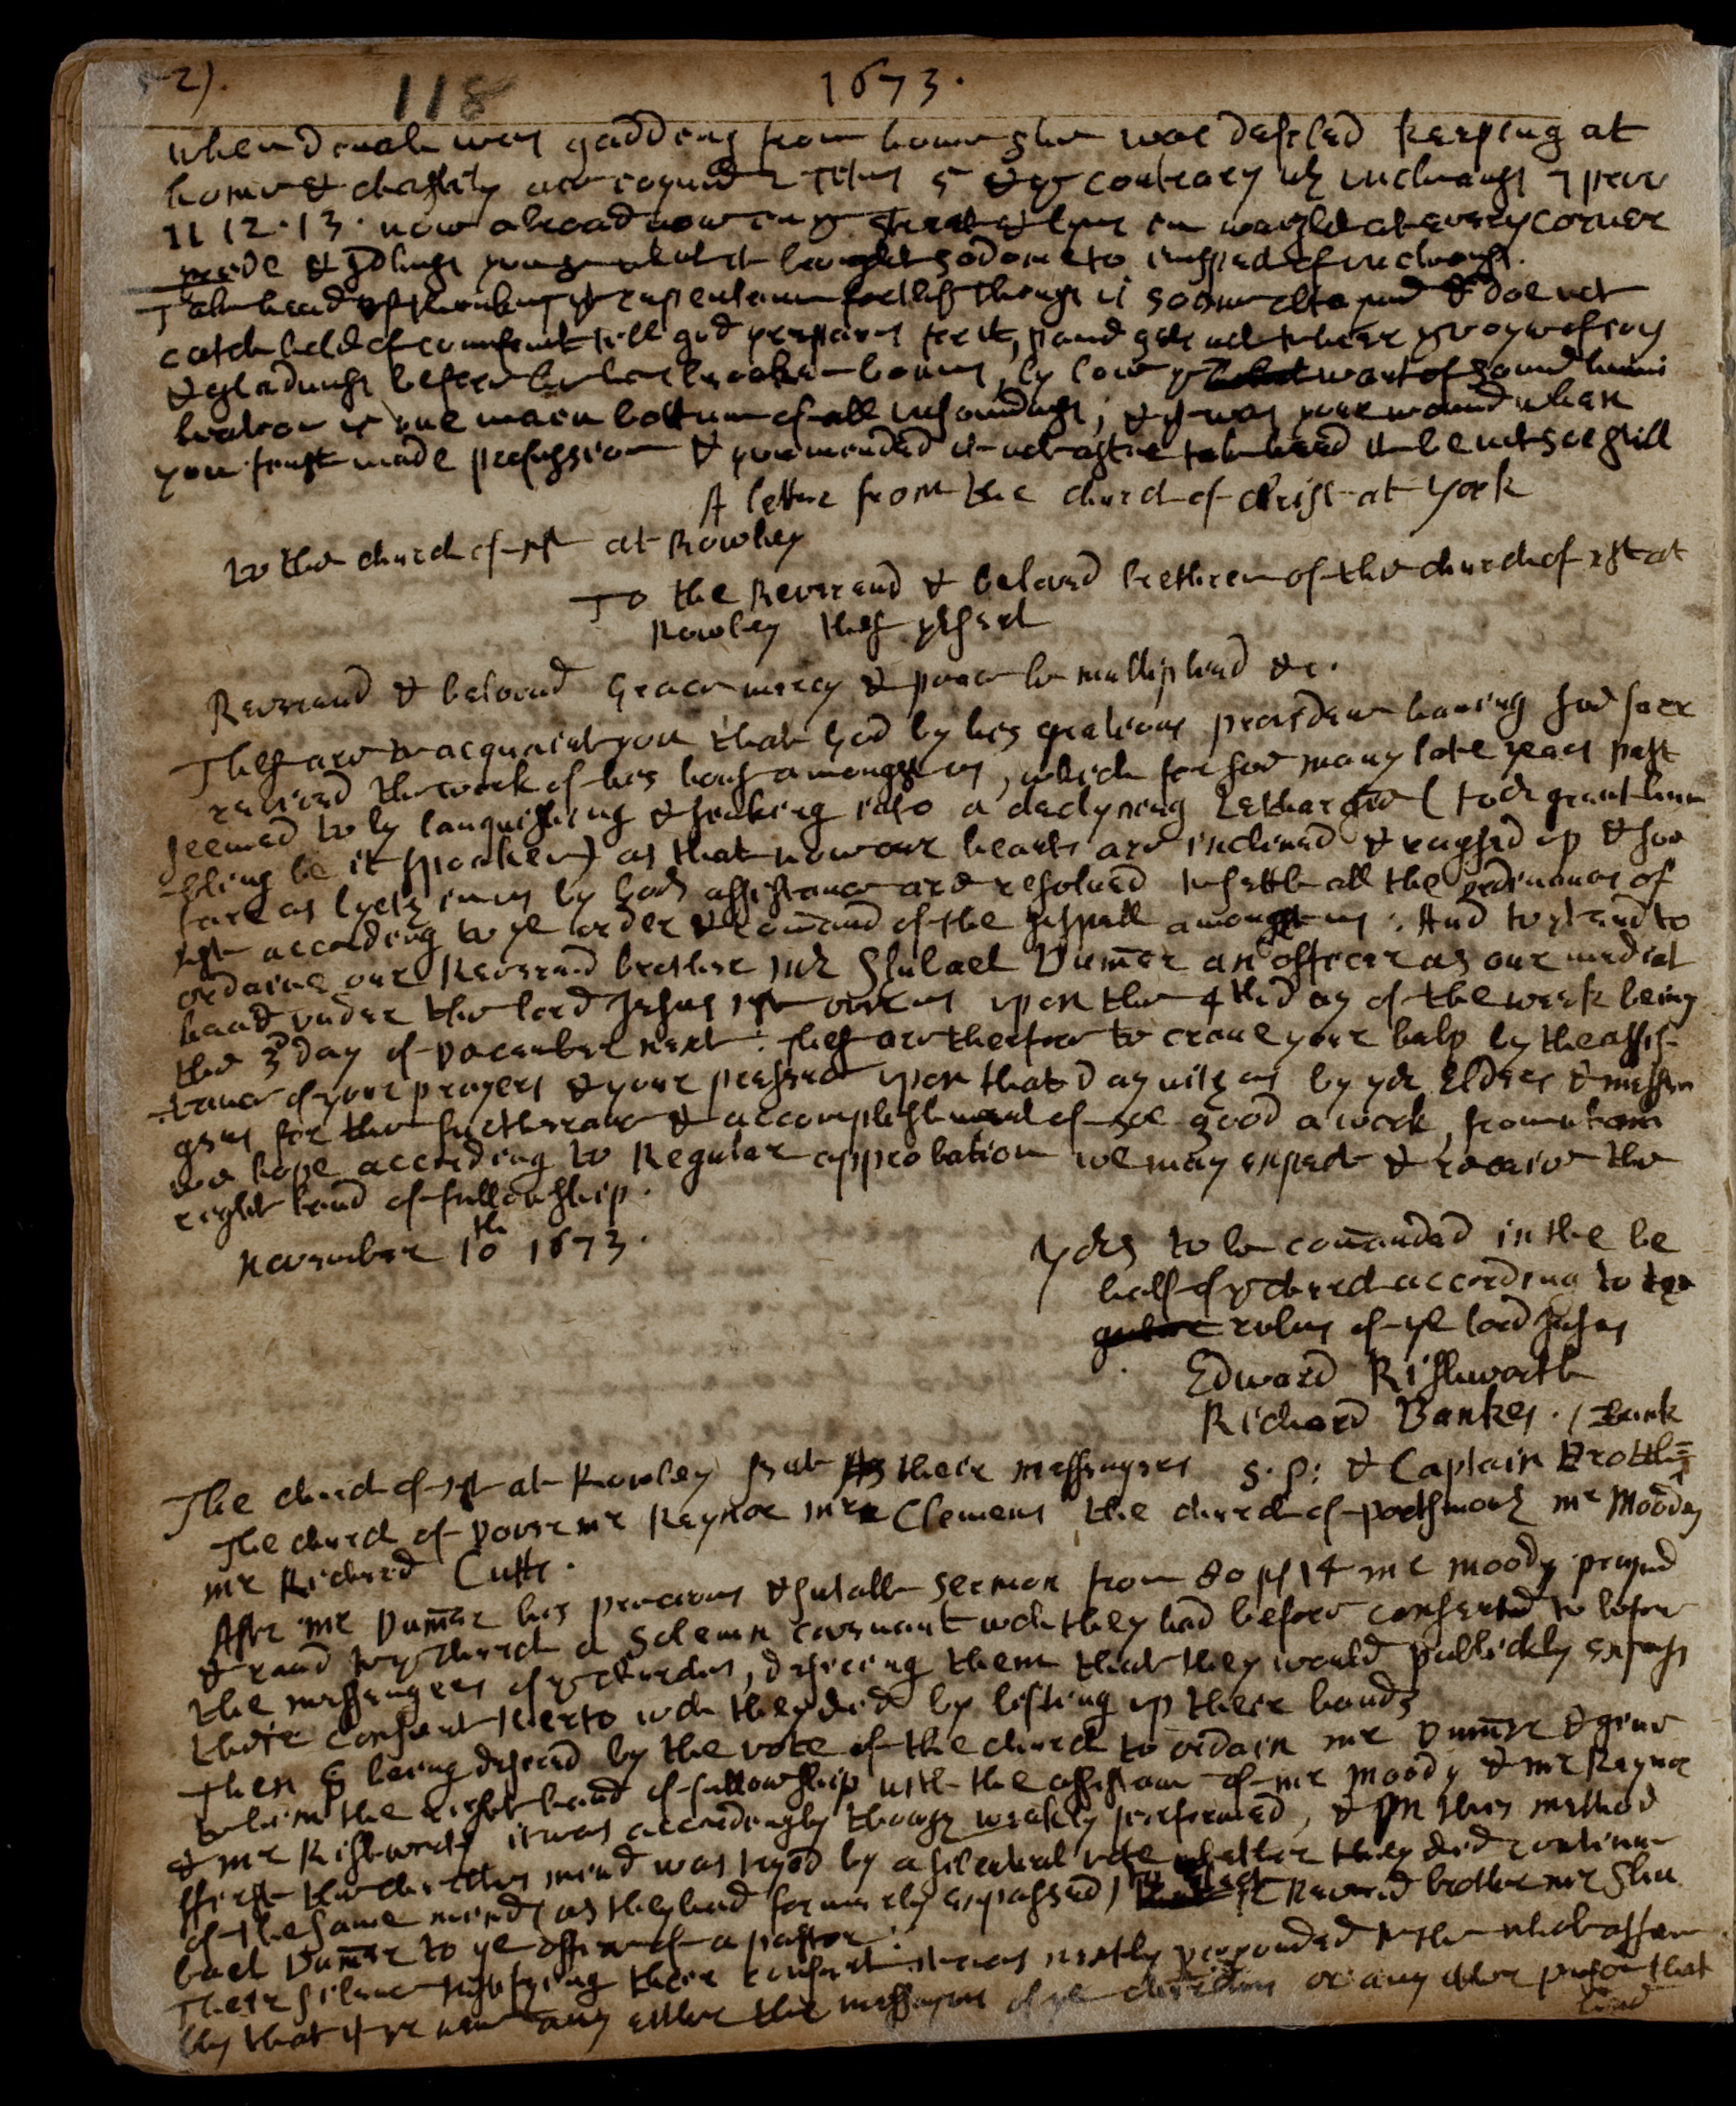 2).
118
1673.
when dinah was gadding from home she was defiled keeping at
home & chastity are coynd 2 Titus 5 & ye contrary wth uncleanness 7 prov
11 12. 13. now abroad now in ye street & lyes in wayt at every corner
pride & Idlenes
Take heed of thinking yt repentance
catch hold of comfort till god prepares for it, yu wilt not heare ye voyce of joy
& gladness before he hath broken bones, want of sound humi
liation is one main bottum of all unsoundness; & it was your wound when
you first made profession & you mended it not after take heed it be not soe still
A letter from the church of christ at york
to the church of xst at Rowley
To the Reverend & beloved brethren of the church of xst at
Rowley these present
Reverend & beloved Grace mercy & peace be multiplied &c.
These are to acquaint you that God by his gratious providence having soe farr
revived the work of his house amongst us, which for soe many late years past
seemed to ly languishing & sinking into a declyning Lethargie (to or great hum
-bling be it spoken) as that now our hearts are inclined & raysed up & soe
farr as lyeth in us by Gods assistance are resolved to settle all the ordinances of
xst according to ye order & comand of the gospell amongst us. And to yt end to
ordaine our Reverend brother mr Shubael Dumer an officer as our imediat
head under the lord Jesus xst over us upon the 4th day of the week being
the 3d day of December next: These are therfore to crave your help by the assis-
-tance of your prayers & your presence upon that day with us by yor Elders & messen
gers for the furtherance & accomplishment of soe good a work, from whom
we hope according to Regular approbation we may expect & receive the
right hand of fellowship.
November 10th 1673.
Yors to be comanded in the be
half of ye church according to the
rules of ye lord Jesus
Edward Rishworth
Richard Bankes. / Bank
The church of xst at Rowley sent their messengers S. P: & Captain Brottle=
The church of Dover mr Reynor mr Clemens the church of portsmouth mr Moody
mr Richard Cutte.
After mr Dumer his precious & sutable sermon from 80 ps 14 mr moody prayed
& read to ye church a solemn covenant wch they had before consented to before
the messengers of ye churches, desireing them that they would publickly express
their consent therto wch they did by lifting up their hands
Then S being desired by the vote of the church to ordain mr Dumer & give
to him the right hand of fellowship with the assistance of mr moody & mr Reynor
& mr Rishworth it was accordingly though weakly performed, & in this method
ffirst the churches mind was tryed by a silential vote whether they did continue
of the same mind (as they had formerly expressed) to elect ye Reverend brother mr Shu
bael Dumer to ye office of a pastor.
Their silence testifying their consent it was nextly propounded to the whole assem
bly that if ye knew any either the messengers of ye churches or any other person that